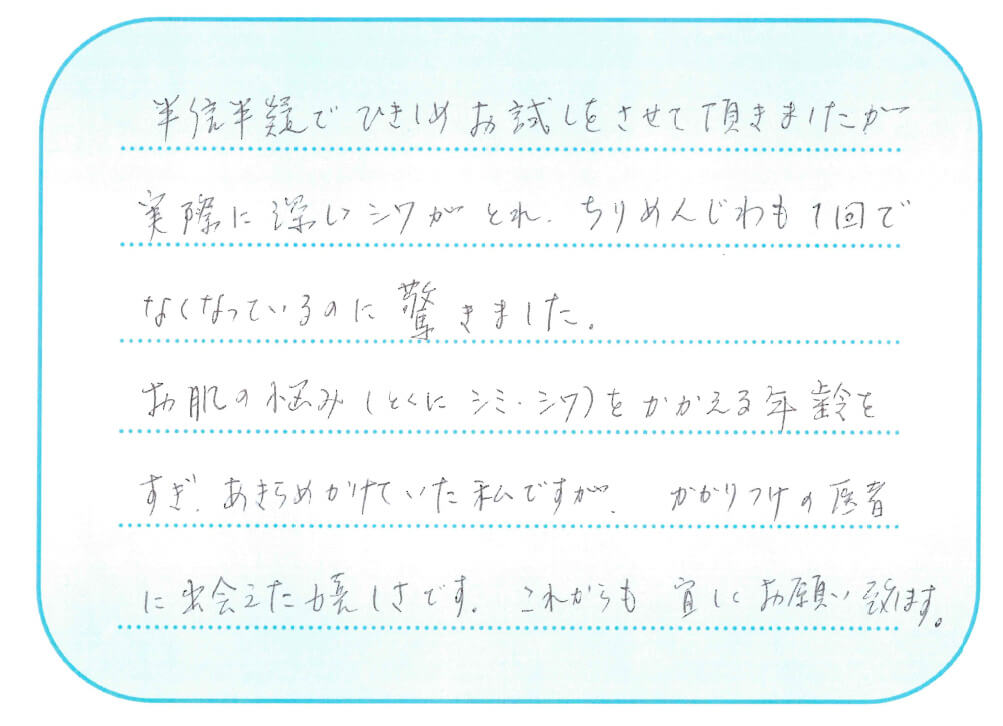 半信半疑でひきしめお試しをさせて頂きましたが
実際に深いシワがとれ、ちりめんじわも1回で
なくなっているのに驚きました。
お肌の悩み(とくにシミ・シワ)をかかえる年齢を
すぎ、あきらめかけていた私ですが、かかりつけの医者
に出会えた嬉しさです。これからも宜しくお願い致します。